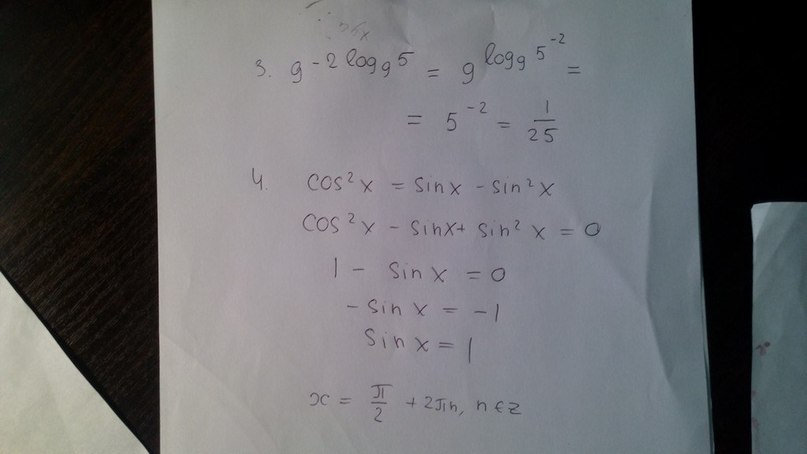 3. 9^{-2 log_9 5} = 9^{log_9 5^{-2}} =
= 5^{-2} = 1/25
4. cos²x = sinx - sin²x
cos²x - sinx + sin²x = 0
1 - sin x = 0
- sin x = -1
sin x = 1
x = π/2 + 2πn, n ∈ z